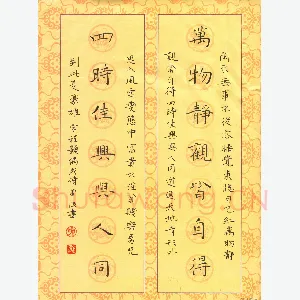 閒來無事不從容睡覺東窗日已紅萬物靜
萬物靜觀皆自得
觀皆自得四時佳興與人同道通天地有形外
思入風雲變態中富貴不淫貧賤樂男兒
四時佳興與人同
到此是豪雄
Shufawang.CN